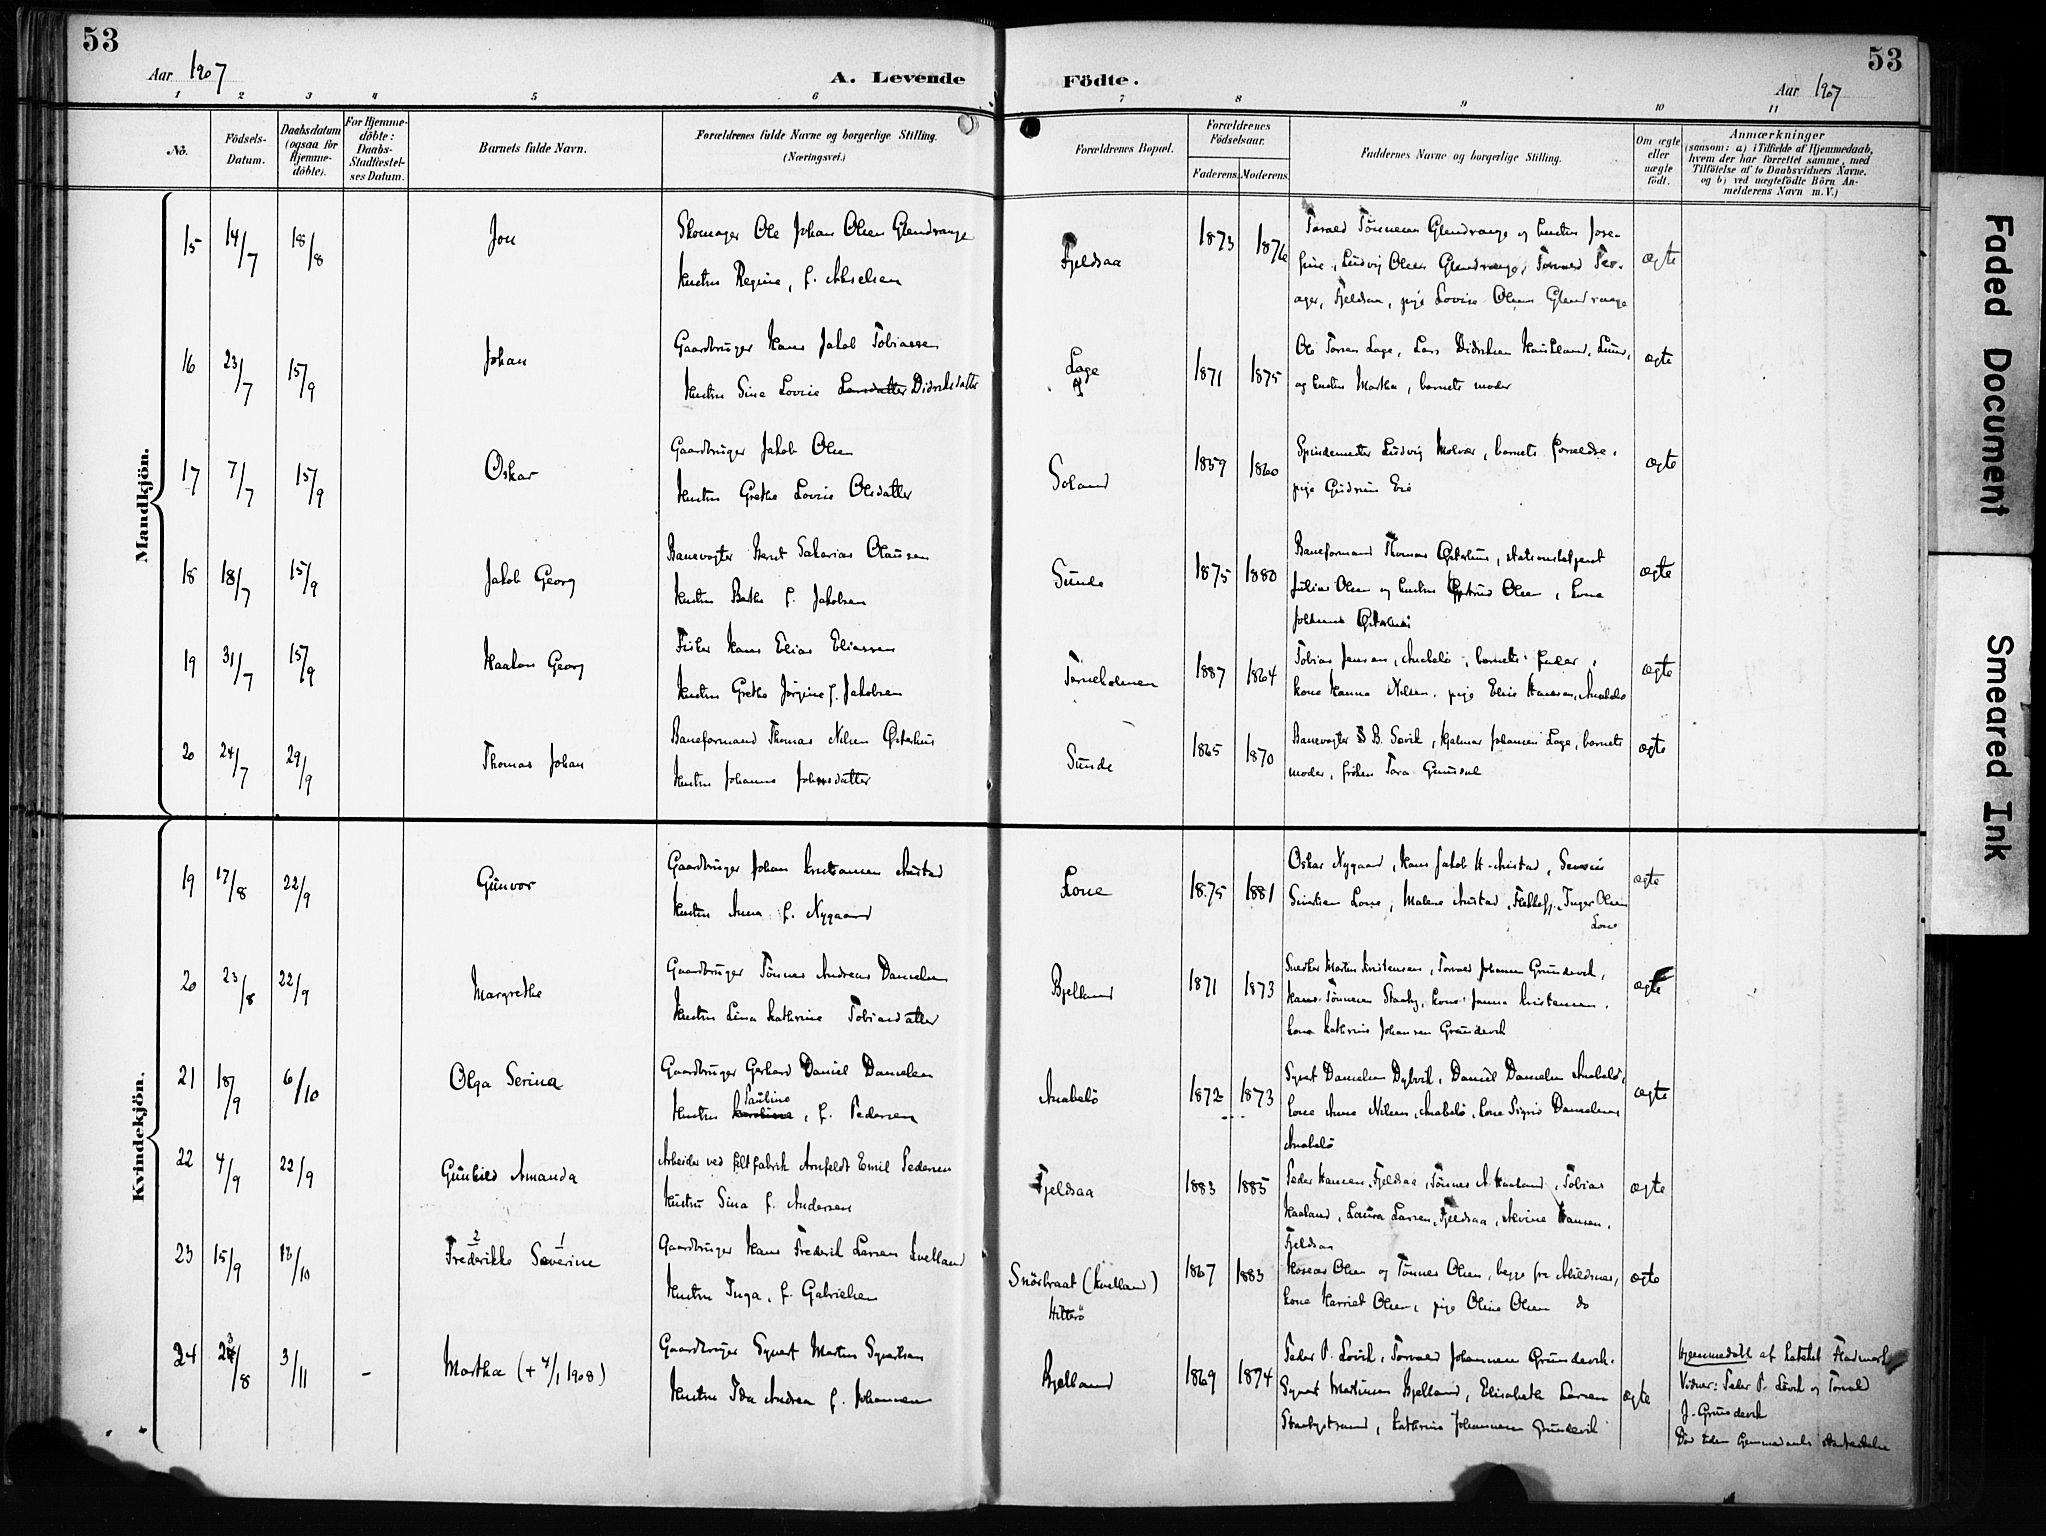 53
53
Aar 1907
A. Levende
Födte.
Aar 1907
1 2 3 4 5 6 7 8 9 10 11
No.
Födsels-Datum.
Daabsdatum (ogsaa for Hjemme-döbte).
For Hjemme-döbte: Daabs-Stadfæstel-ses Datum.
Barnets fulde Navn.
Forældrenes fulde Navne og borgerlige Stilling.
(Næringsvei.)
Forældrenes Bopæl.
Forældrenes Födselsaar.
Faderens. Moderens.
Faddernes Navne og borgerlige Stilling.
Om ægte eller uægte födt.
Anmærkninger
(saasom: a) i Tilfælde af Hjemmedaab,
hvem der har forrettet samme, med
Tilföielse af to Daabsvidners Navne,
og b) ved uægtefödte Börn An-
melderens Navn m. V.)
Mandkjön.
15 14/7 18/8 Jon
Skomager Ole Johan Olsen Glendrange
Hustru Regine, f. Akselsen
Fjeldsaa 1873 1876
Torvald Tönnesen Glendrange og hustru Jose-
fine, Ludvig Olsen Glendrange,
Fjeldsaa, pige Lovise Olsen Glendrange
ægte
16 23/7 15/9 Johan
Gaardbruger Hans Jakob Tobiassen
Hustru Sine Lovise Larsdatter Didriksdatter
Lage 1871 1875
Ole Larsen Lage, Lars Didriksen
og hustru Martha, barnets moder
ægte
17 7/7 15/9 Oskar
Gaardbruger Jakob Olsen
Hustru Grethe Lovise Olsdatter
Soland 1859 1860
Spindemester Ludvig Molvær, barnets forældre,
pige Gudrun Eie
ægte
18 18/7 15/9 Jakob Georg
Banevogter Bernt Sakarias Olausen
Hustru Berthe f. Jakobsen
Sunde 1875 1880
Baneformand Thomas Osterhus, stationsbetjent
Julius Olsen og hustru Gjertrud Olsen, kone
Johanne Osterhus
ægte
19 31/7 15/9 Haakon Georg
Fisker Hans Elias Eliassen
Hustru Grethe Jörgine f. Jakobsen
Terneholmen 1887 1864
Tobias Jensen, Anabelö, barnets fader,
kone Hanna Nilsen, pige Elise Hansen, Anabelö
ægte
20 24/7 29/9 Thomas Johan
Baneformand Thomas Nilsen Osterhus
Hustru Johanne Johnsdatter
Sunde 1865 1870
Banevogter S B. Sævik, Hjalmar Johansen Lage, barnets
moder, fröken Tora
ægte
Kvindekjön.
19 17/8 22/9 Gunvor
Gaardbruger Johan Kristiansen Austad
Hustru Anna f. Nygaard
Lone 1875 1881
Oskar Nygaard, Hans Jakob H. Austad,
Lone, Malene Austad, Inger Olsen
Lone
ægte
20 23/8 22/9 Margrethe
Gaardbruger Tönnes Andreas Danielsen
Hustru Lina Kathrine Tobiasdatter
Bjelland 1871 1873
Snedker Martin Kristensen, Torvald Johansen Grundevik,
Hans Tönnesen Staaby, kone Janna Kristensen,
kone Kathrine Johansen Grundevik
ægte
21 18/9 6/10 Olga Serina
Gaardbruger Gerhard Daniel Danielsen
Pauline
Hustru Karoline, f. Pedersen
Anabelö 1872 1873
Syvert Danielsen Dybvik, Daniel Danielsen Anabelö,
kone Anna Nilsen, Anabelö, kone Signe Danielsen
Anabelö
ægte
22 4/9 22/9 Gunhild Amanda
Arbeider ved filtfabrik Arnfeldt Emil Pedersen
Hustru Sina f. Andersen
Fjeldsaa 1883 1885
Peder Hansen, Fjeldsaa, Tönnes A. Haaland, Tobias
Haaland, Laura Larsen, Fjeldsaa, Alvine Hansen,
Fjeldsaa
ægte
23 15/9 13/10
2 1
Fredrikke Severine
Gaardbruger Hans Frederik Larsen Kvelland
Hustru Inga, f. Gabrielsen
Snörbraat (Kvelland)
Hitterö
1867 1883
Olsen og Tönnes Olsen, begge fra Abildsnes,
kone Harriet Olsen, pige Oline Olsen do
ægte
24 23/8 3/11 - Martha (+ 4/1 1908)
Gaardbruger Syvert Martin Syvertsen
Hustru Ida Andrea f. Johannesen
Bjelland 1869 1874
Peder P. Lövik, Torvald Johannesen Grundevik,
Syvert Martinsen Bjelland, Elisabeth Larsen
Staabystrand, Kathrine Johannesen Grundevik
ægte
Hjemmedöbt af
Vidner: Peder P. Lövik og Torvald
J. Grundevik
Faded Document
Smeared Ink